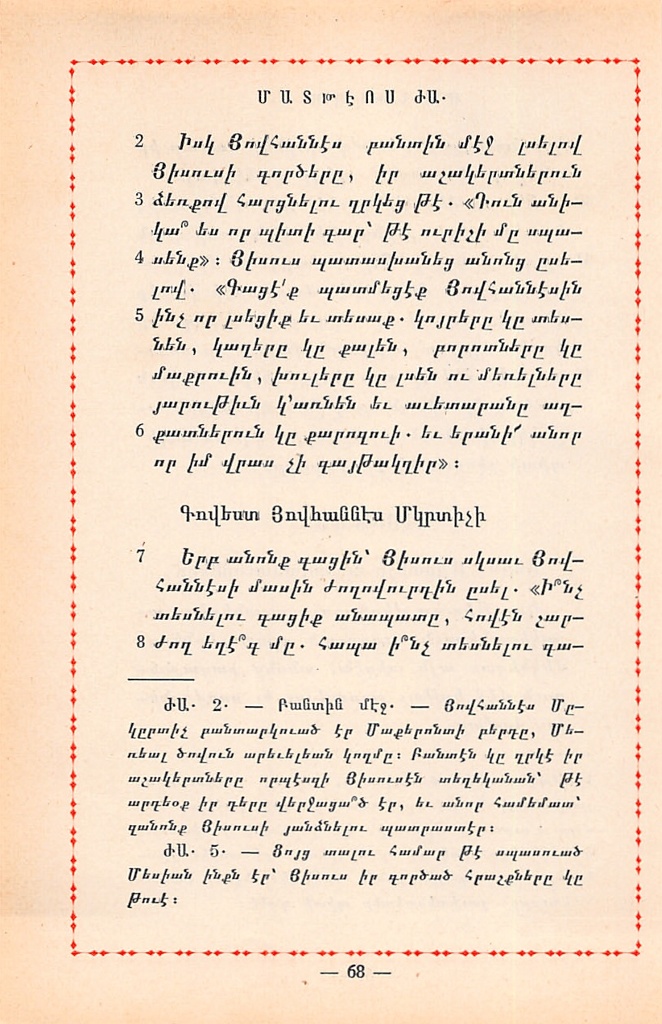 ՄԱՏԹԷՈՍ ԺԱ.
2 Իսկ Յովհաննէս բանտին մէջ լսելով
Յիսուսի գործերը, իր աշակերտներուն
3 ձեռքով հարցնելու ղրկեց թէ. «Դուն անի-
կա՞ ես որ պիտի գար՝ թէ ուրիշի մը սպա-
4 սենք»: Յիսուս պատասխանեց անոնց ըսե-
լով. «Գացէ՛ք պատմեցէք Յովհաննէսին
5 ինչ որ լսեցիք եւ տեսաք. կոյրերը կը տես-
նեն, կաղերը կը քալեն, բորոտները կը
մաքրուին, խուլերը կը լսեն ու մեռելները
յարութիւն կ'առնեն եւ աւետարանը աղ-
6 քատներուն կը քարոզուի. եւ երանի՜ անոր
որ իմ վրաս չի գայթակղիր»:
Գովեստ Յովհաննէս Մկրտիչի
7 Երբ անոնք գացին՝ Յիսուս սկսաւ Յով-
հաննէսի մասին ժողովուրդին ըսել. «Ի՞նչ
տեսնելու գացիք անապատը, հովէն շար-
8 ժող եղէ՞գ մը. հապա ի՞նչ տեսնելու գա-
ԺԱ. 2. — Բանտին մէջ. — Յովհաննէս Մը-
կըրտիչ բանտարկուած էր Մաքերոնտի բերդը, Մե-
ռեալ ծովուն արեւելեան կողմը: Բանտէն կը ղրկէ իր
աշակերտները որպէսզի Յիսուսէն տեղեկանան՝ թէ
արդեօք իր դերը վերջացա՞ծ էր, եւ անոր համեմատ՝
զանոնք Յիսուսի յանձնելու պատրաստէր:
ԺԱ. 5. — Ցոյց տալու համար թէ սպասուած
Մեսիան ինքն էր՝ Յիսուս իր գործած հրաշքները կը
թուէ:
— 68 —